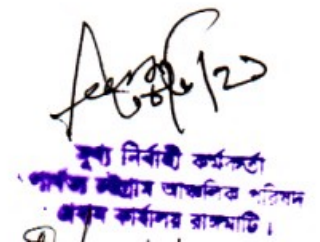 মুখ্য নির্বাহী কর্মকর্তা
পার্বত্য চট্টগ্রাম আঞ্চলিক পরিষদ
প্রধান কার্যালয় রাঙ্গামাটি।